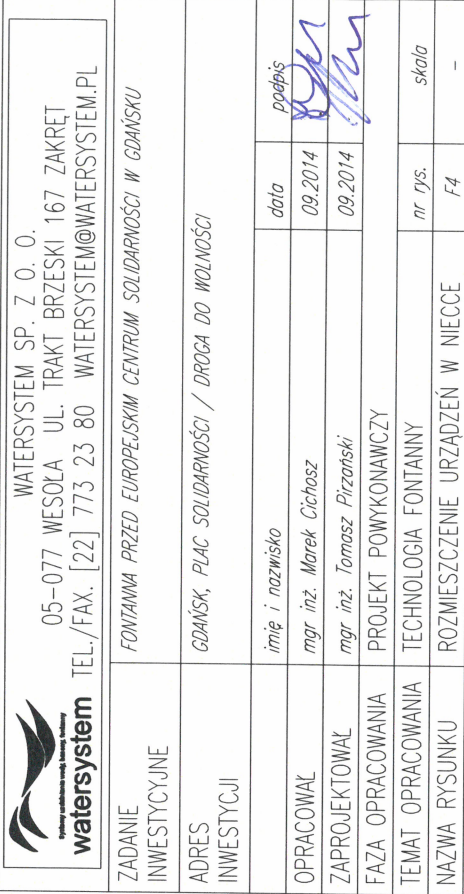 WATERSYSTEM SP. Z O. O.
05-077 WESOŁA UL. TRAKT BRZESKI 167 ZAKRĘT
TEL./FAX. [22] 773 23 80 WATERSYSTEM@WATERSYSTEM.PL
Systemy uzdatniania wody, baseny, fontanny
watersystem
ZADANIE INWESTYCYJNE
FONTANNA PRZED EUROPEJSKIM CENTRUM SOLIDARNOŚCI W GDAŃSKU
ADRES INWESTYCJI
GDAŃSK, PLAC SOLIDARNOŚCI / DROGA DO WOLNOŚCI
imię i nazwisko data podpis
OPRACOWAŁ mgr inż. Marek Cichosz 09.2014
ZAPROJEKTOWAŁ mgr inż. Tomasz Pirzański 09.2014
FAZA OPRACOWANIA PROJEKT POWYKONAWCZY
TEMAT OPRACOWANIA TECHNOLOGIA FONTANNY nr rys. skala
NAZWA RYSUNKU ROZMIESZCZENIE URZĄDZEŃ W NIECCE F4 -